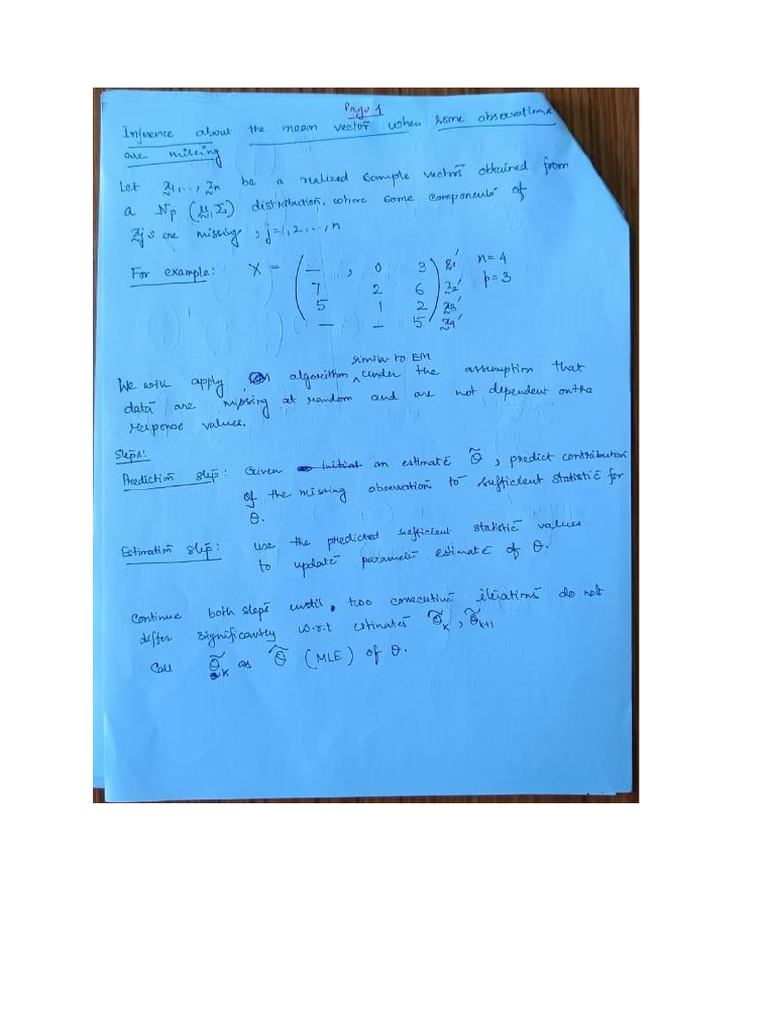 Page 1
Inference about the mean vector when some observations
are missing
Let x̰1,..., x̰n be a realized sample vectors obtained from
a Np (μ̰, Σ) distribution. where some components of
x̰j s are missing, j=1,2,...,n
For example: X = ( — , 0 3 ) x̰1' n=4
7 2 6 x̰2' p=3
5 1 2 x̰3'
— — 5 x̰4'
similar to EM
We will apply an algorithm ^ under the assumption that
data are missing at random and are not dependent on the
response values.
Steps:
Prediction step: Given initial an estimate θ̃, predict contribution
of the missing observation to sufficient statistic for
θ.
Estimation step: use the predicted sufficient statistic values
to update parameter estimate of θ.
Continue both steps until two consecutive iterations do not
differ significantly w.r.t estimates θ̃k, θ̃k+1
Call θ̃k as θ̂ (MLE) of θ.